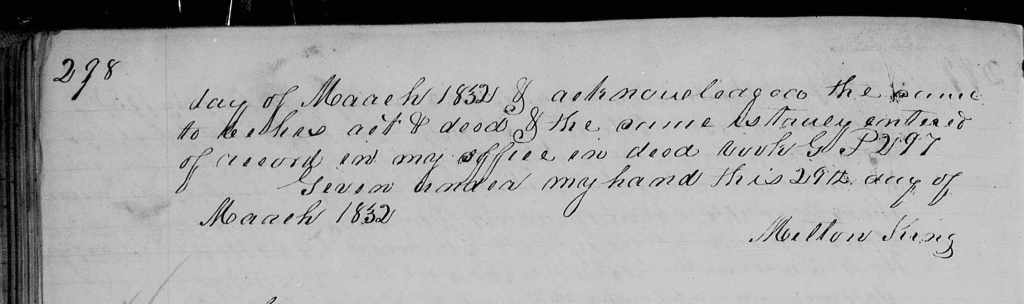 298
day of March 1832 & acknowledged the same
to be his act & deed & the same is truly entered
of record in my office in deed book G P 297
Given under my hand this 29th day of
March 1832
Milton King